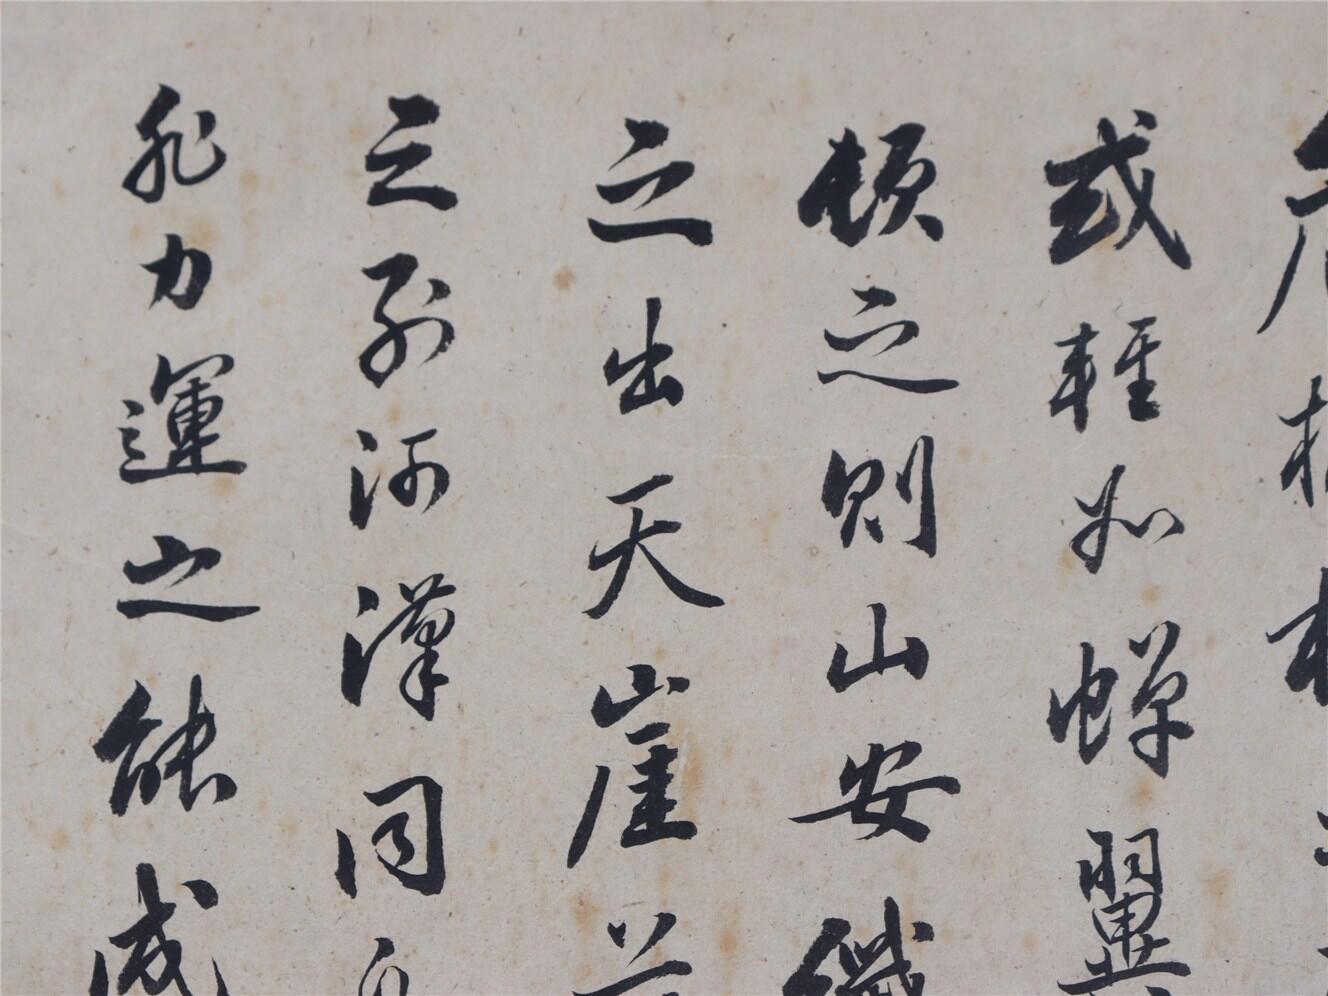 或輕如蟬翼
頓之則山安纖
之出天崖
之列河漢同
非力運之能成